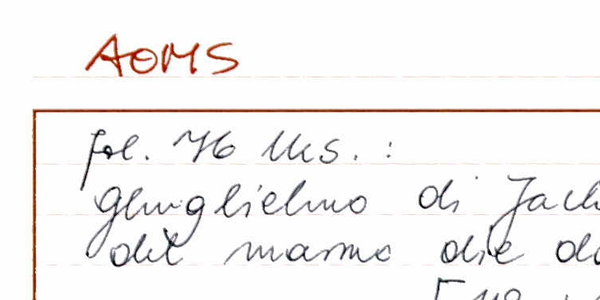 AOMS
fol. 76 Ms. :
Ghuglielmo di Jach
det mamo die